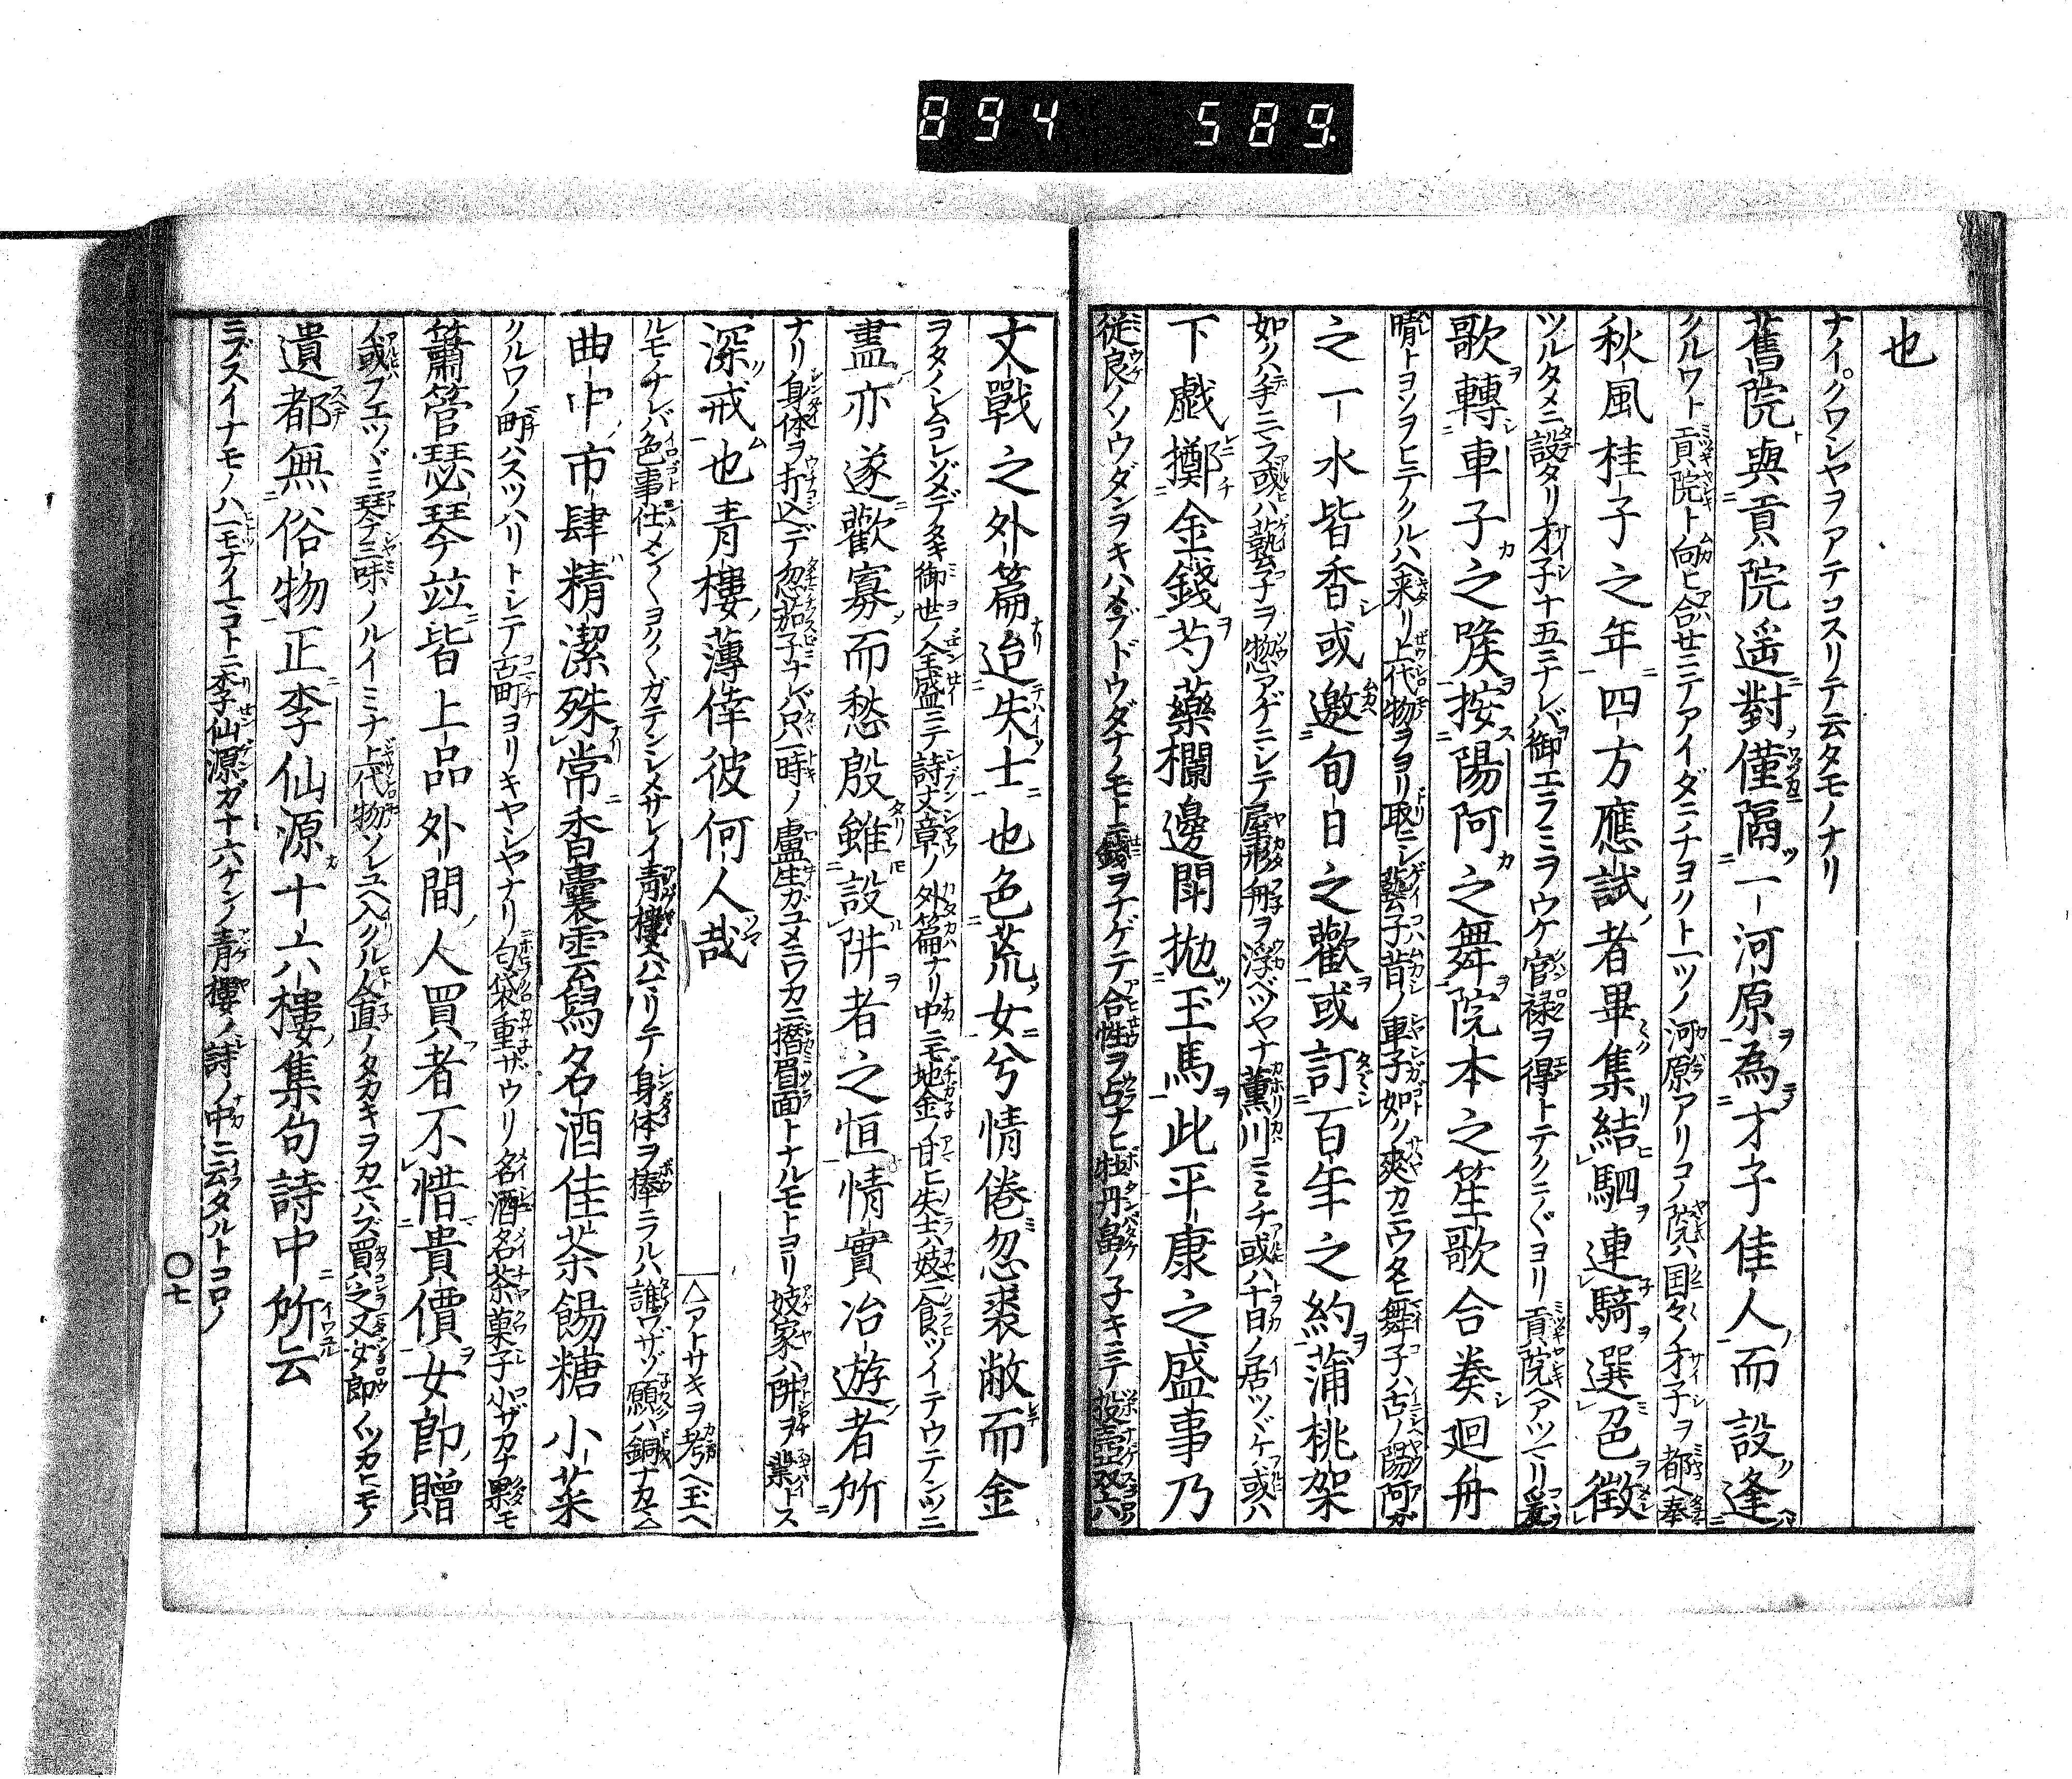 894 589
也
ナイクワシヤヲアテコスリテ云タモノナリ
舊院與貢院遥對僅隔一河原為才子佳人而設逢
クルワト貢院ト向ヒ合セニテアイダニチヨクト一ツノ河原アリコノ院ハ国々ノ才子ヲ都ヘ奉
秋風桂子之年四方應試者畢集結駟連騎選色徴
ツルタメニ設タリ才子十五ミナレバ御エラミヲウケ官禄ヲ得トテクニ〲ヨリ貢院ヘアツマリ
歌轉車子之喉按陽阿之舞院本之笙歌合奏廻舟
晴トヨソヲヒテクルハヘ来リ上代物ヲヨリ取ニシ藝子昔ノ車子如ク爽カニウタヒ舞子ハ古ノ陽阿ガ
之一水皆香或邀旬日之歡或訂百年之約蒲桃架
如クハ手ニス或ハ藝子ヲ惣アゲニシテ屋形舟ヲ浮ベツヤナ薫川ニミチ或ハ十日ノ居ツヾケ或ハ
下戯擲金錢芍藥欄邊閙拋玉馬此平康之盛事乃
従良ノソウダンヲキハメブドウダナノモトニ錢ヲナゲテ合性ヲ占ナヒ牡丹畠ノ子キニテ投壺双六
文戰之外篇迨失士也色荒女兮情倦忽裘敝而金
ヲタノシムコレゾメデタキ御世ノ全盛ニテ詩文章ノ外篇ナリ中ニモ地金ノ甘ヒ失士ハ妓ニ食ツイテウテンツニ
盡亦遂歡寡而愁殷雖設阱者之恒情實冶遊者所
ナリ身体ヲ打込デ忽茄子ナレバ只一時ノ盧生ガユメニワカニ摺眉面トナルモトヨリ妓家ハ阱ヲ業トス
深戒也青樓薄倖彼何人哉
△アトサキヲ考ヘ玉ヘ
ルモノナレバ色事仕メン〱ヨク〱ガテンシメサレイ青樓ヘハマリテ身体ヲ棒ニフルハ誰ワザゾ願ハ銅ナカマ△
曲中市肆精潔殊常香囊雲舄名酒佳茶餳糖小菜
クルワノ町ハスツハリトシテ古町ヨリキヤシヤナリ匂袋重ザウリ名酒名茶菓子小ザカナ果モ
簫管瑟琴竝皆上品外間人買者不惜貴價女郎贈
ノ或フエツヾミ琴三味ノルイミナ上代物ソレユヘ入クル人直ノタカキヲカマハズ買之又女郎ノツカヒモノ
遺都無俗物正李仙源十六樓集句詩中所云
ニブスイナモノハ一モナイコト二李仙源ガ十六ケンノ青樓ノ詩ノ中ニ云タルトコロノ
〇七